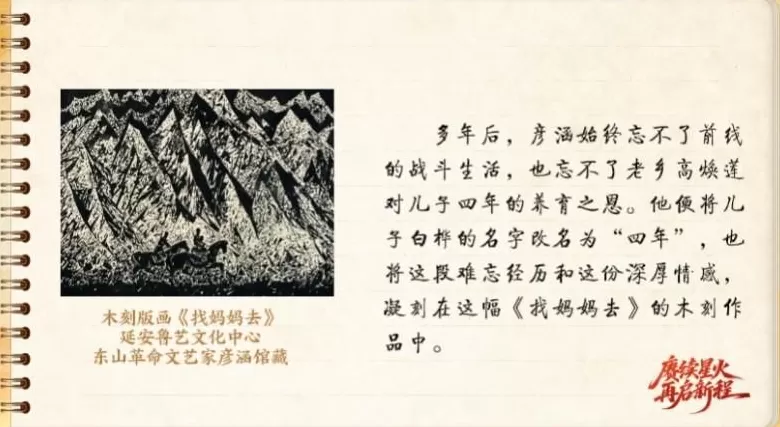 木刻版画《找妈妈去》
延安鲁艺文化中心
东山革命文艺家彦涵馆藏
多年后，彦涵始终忘不了前线
的战斗生活，也忘不了老乡高焕莲
对儿子四年的养育之恩。他便将儿
子白桦的名字改名为“四年”，也
将这段难忘经历和这份深厚情感，
凝刻在这幅《找妈妈去》的木刻作
品中。
赓续星火
再启新程